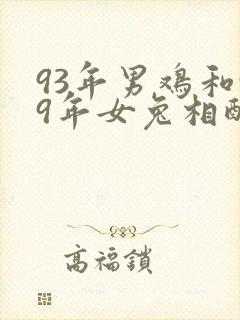 93年男鸡和
9年女兔相配
高福鎖